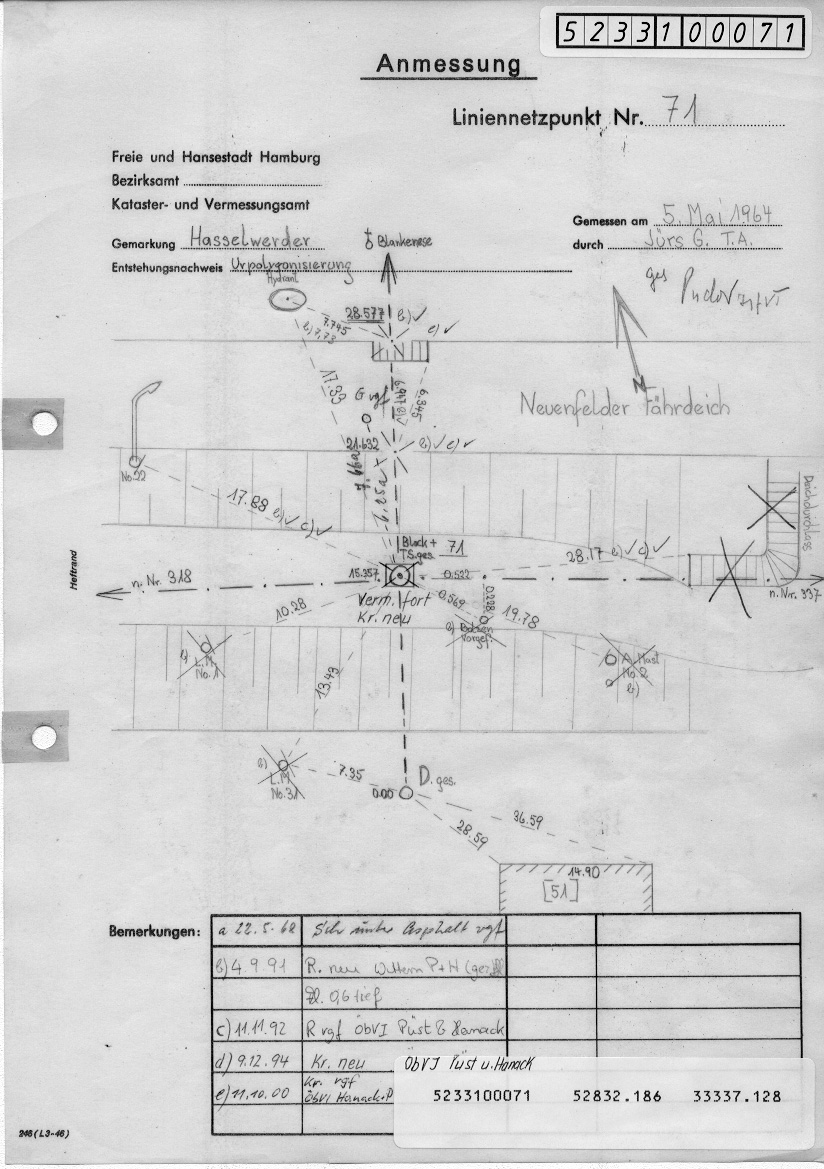 5233100071
Anmessung
Liniennetzpunkt Nr. 71
Freie und Hansestadt Hamburg
Bezirksamt
Kataster- und Vermessungsamt
Gemessen am 5. Mai 1964
Gemarkung Hasselwerder
durch Jürs G. T.A.
Entstehungsnachweis Urpolygonisierung
ges
Blankenese
Hydrant
28.577 b)✓
7.745
b) 7,73
e)✓
17.39
6.947
6.345
G vgf
N
Neuenfelder Fährdeich
21.632 b)✓ c)✓
No.22
17.88 b)✓ c)✓
Deichdurchlass
Block+
T.S. ges. 71
28.17 b)✓ c)✓
Heftrand
n. Nr. 318
15.357
0.522
n. Nr. 337
Verm. fort
Kr. neu
0.569
0.228
10.28
19.78
b) Bolzen
vorgef.
b)
L.M
No.1
A. Mast
No.2
b)
13.43
b)
L.M
No.31
7.35
0.00
D. ges.
28.59
36.59
14.90
[51]
Bemerkungen:
a 22.5.68 Sch unter Asphalt vgf
b) 4.9.91 R. neu
0,6 tief
c) 11.11.92 R vgf ÖbVI Püst & Hanack
d) 9.12.94 Kr. neu ÖbVI Püst u. Hanack
e) 11.10.00 Kr. vgf
ÖbVI Hanack+P
5233100071 52832.186 33337.128
246 (L3-46)